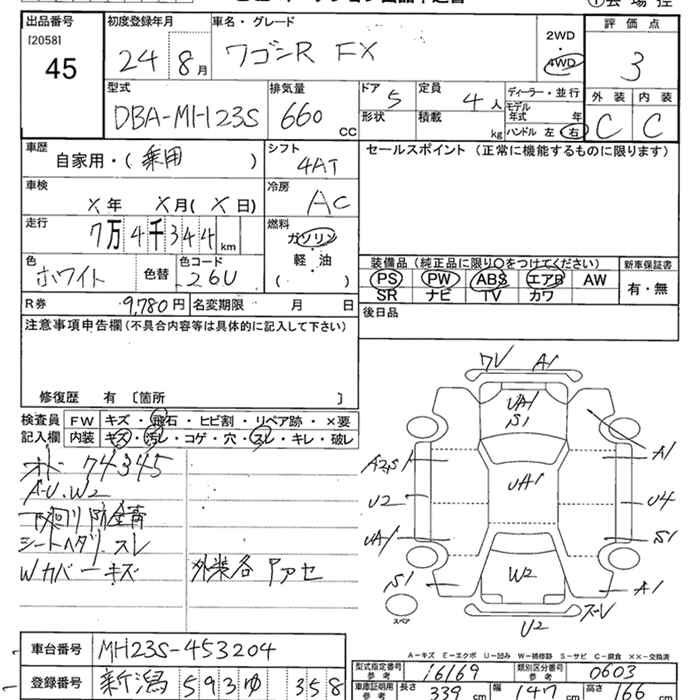 出品番号 初度登録年月 車名・グレード 評価点
[2058] 45
24 年 8月 ワゴンR FX 2WD・4WD 3
型式 排気量 ドア 定員 ディーラー・並行 外装 内装
DBA-MH23S 660 CC 5 4人 モデル年式 年 C C
形状 積載 kg ハンドル 左 右
車歴 シフト セールスポイント (正常に機能するものに限ります)
自家用・(乗用) 4AT
車検 冷房
X年 X月(X日) AC
走行 燃料
7万4千344km ガソリン
軽・油
( )
色 色替 色コード
ホワイト 26U
装備品 (純正品に限り○をつけてください) 新車保証書
PS PW ABS エアB AW 有・無
SR ナビ TV カワ
R券 9,780円 名変期限 月 日
後日品
注意事項申告欄(不具合内容等は具体的に記入して下さい)
修復歴 有 〔箇所 〕
検査員記入欄 FW キズ・飛石・ヒビ割・リペア跡・×要
内装 キズ・汚レ・コゲ・穴・スレ・キレ・破レ
74345
A・U・W2
下廻り防錆
シートヘタリ スレ
Wカバーキズ 外装各
ワレ A1
UA1
S1
A2,S1 A1
U2 UA1 U4
UA1 S1
S1 W2 A1
スペア
U2
A-キズ E-エクボ U-凹み W-補修跡 S-サビ C-腐食 ××-交換済
車台番号 MH23S-453204
登録番号 新潟 593 ゆ 358
型式指定番号 参考 16169 類別区分番号 参考 0603
車庫証明用 参考 長さ 339 cm 幅 147 cm 高さ 166 cm